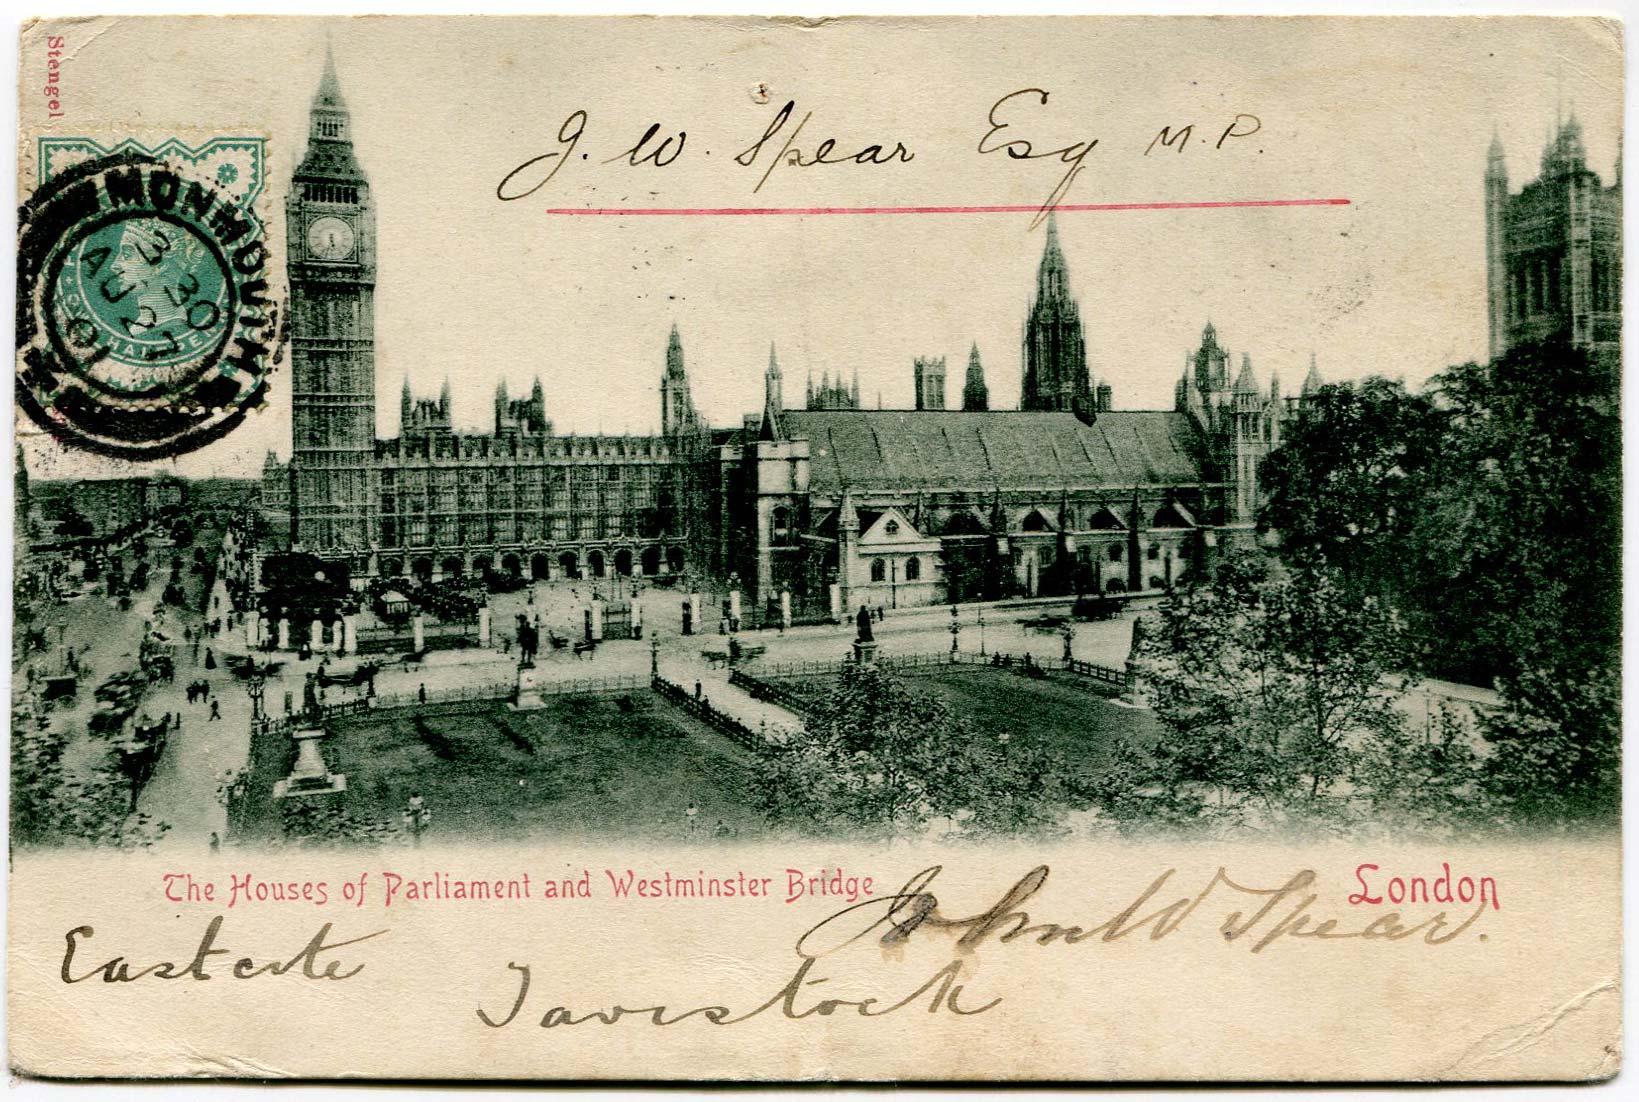 Stengel
J. W. Spear Esq M.P.
MONMOUTH
3 30
AU 27
01
HALFPENNY
The Houses of Parliament and Westminster Bridge
London
John W Spear.
Eastcote
Tavistock